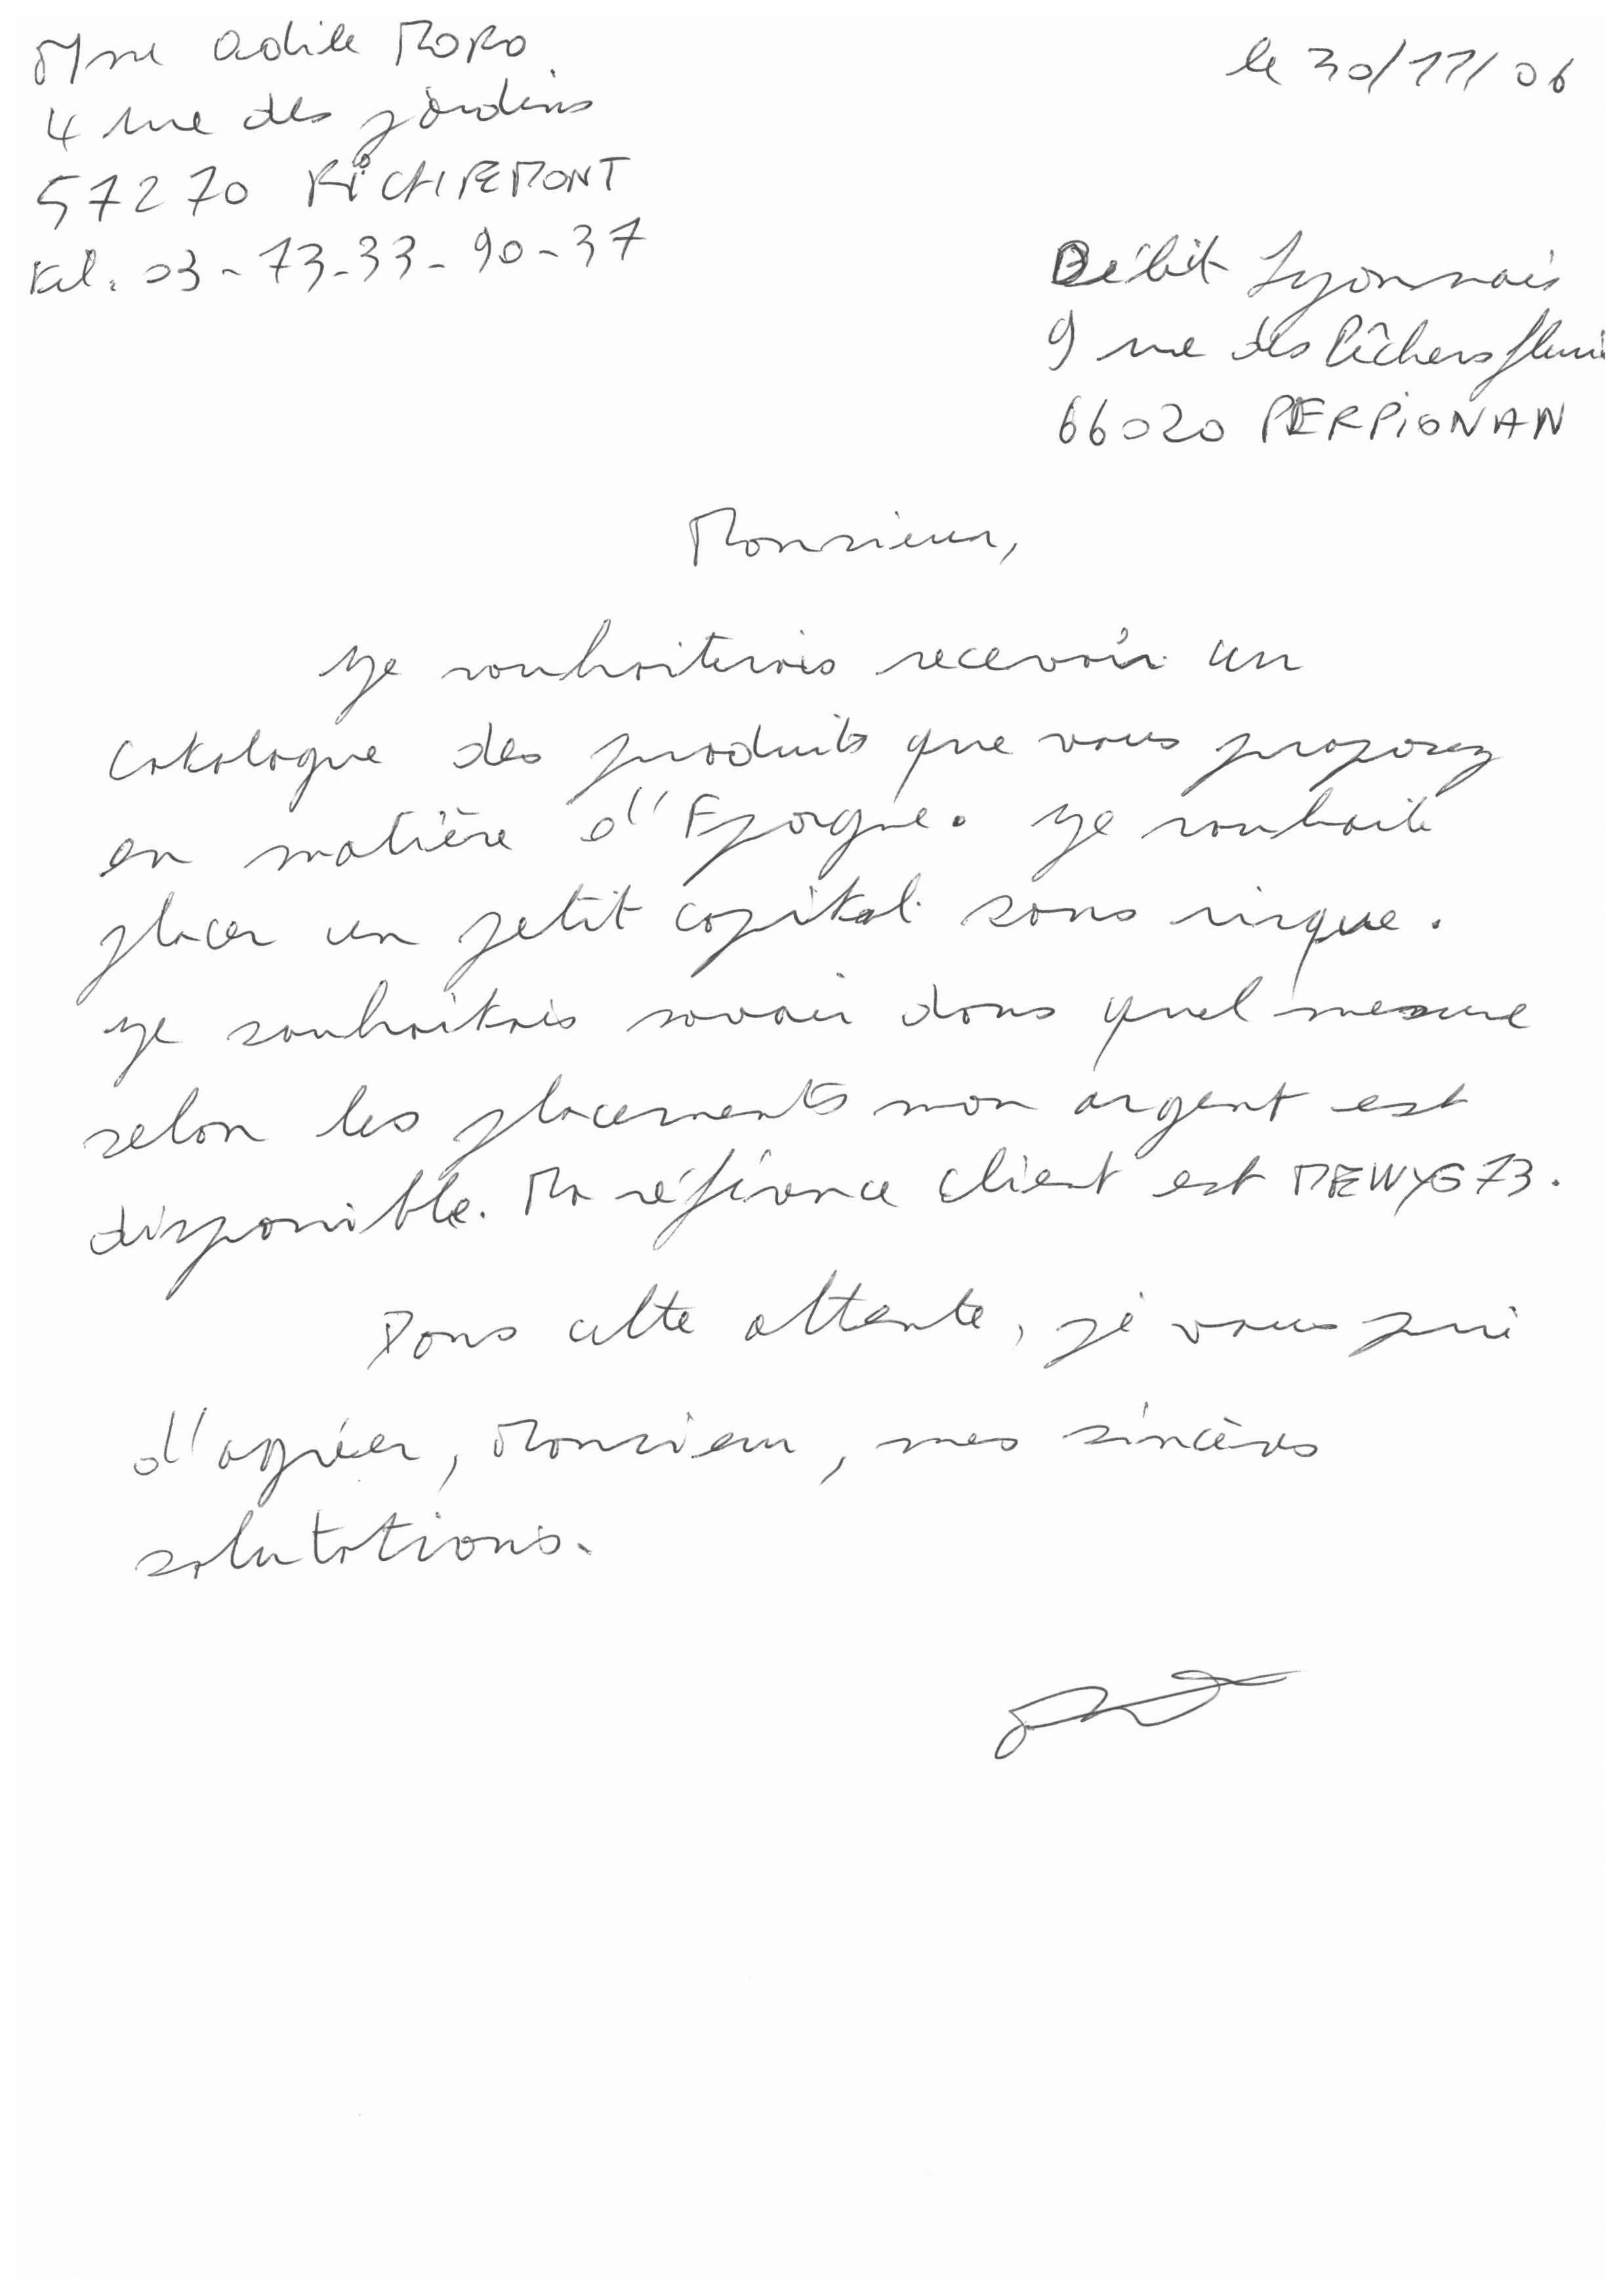 Mme Odile MORO
4 rue des jardins
57270 RICHEMONT
tel. 03-73-33-90-37
le 30/11/06
Débit Lyonnais
9 rue des Pêchers fleuri
66020 PERPIGNAN
Monsieur,
Je souhaiterais recevoir un
catalogue des produits que vous proposez
en matière d'Epargne. Je souhaite
placer un petit capital sans risque.
Je souhaitais savoir dans quel mesure
selon les placements mon argent est
disponible. Ma référence client est MEWYG73.
Dans cette attente, je vous prie
d'agréer, Monsieur, mes sincères
salutations.